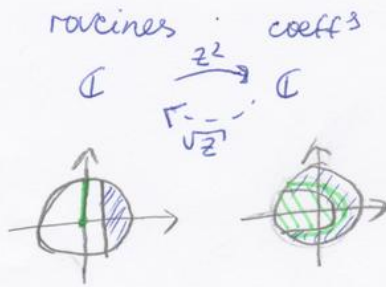 racines . coeffs
z²
ℂ ℂ
√z